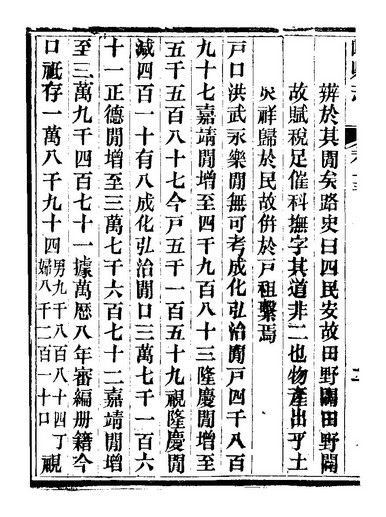 辨於其閒矣路史曰四民安故田野闢田野闢
故賦稅足催科撫字其道非二也物產出乎土
祥歸於民故併於戶租繫焉
戶口洪武永樂閒無可考成化弘治閒戶四千八百
九十七嘉靖閒增至四千九百八十三隆慶閒增至
五千五百八十七今戶五千一百五十九視隆慶閒
減四百一十有八成化弘治閒口三萬七千一百六
十一正德閒增至三萬七千六百七十二嘉靖閒增
至三萬九千四百七十一據萬曆八年審編册籍今
口祗存一萬八千九十四男九千八百八十四丁婦八千二百一十口視